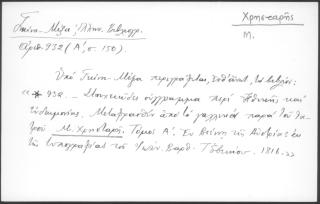 Γκίνη - Μέξα, Ἑλλην. Βιβλιογρ.
Ἀριθ. 932 (Α', σ. 150).
Χρησταρῆς
Μ.
Ὑπὸ Γκίνη - Μέξα περιγράφεται, τὸ βιβλίον:
"* 932. - Στοιχειῶδες σύγγραμμα περὶ Ἠθικῆς καὶ
Εὐδαιμονίας. Μεταφρασθὲν ἀπὸ τὸ γαλλικὸν παρὰ τοῦ ἰα-
τροῦ Μ. Χρησταρῆ. Τόμος Α'. Ἐν Βιέννῃ τῆς Αὐστρίας ἐκ
τῆς τυπογραφίας τοῦ Ἰωάν. Βαρθ. Τσβεκίου. 1816."